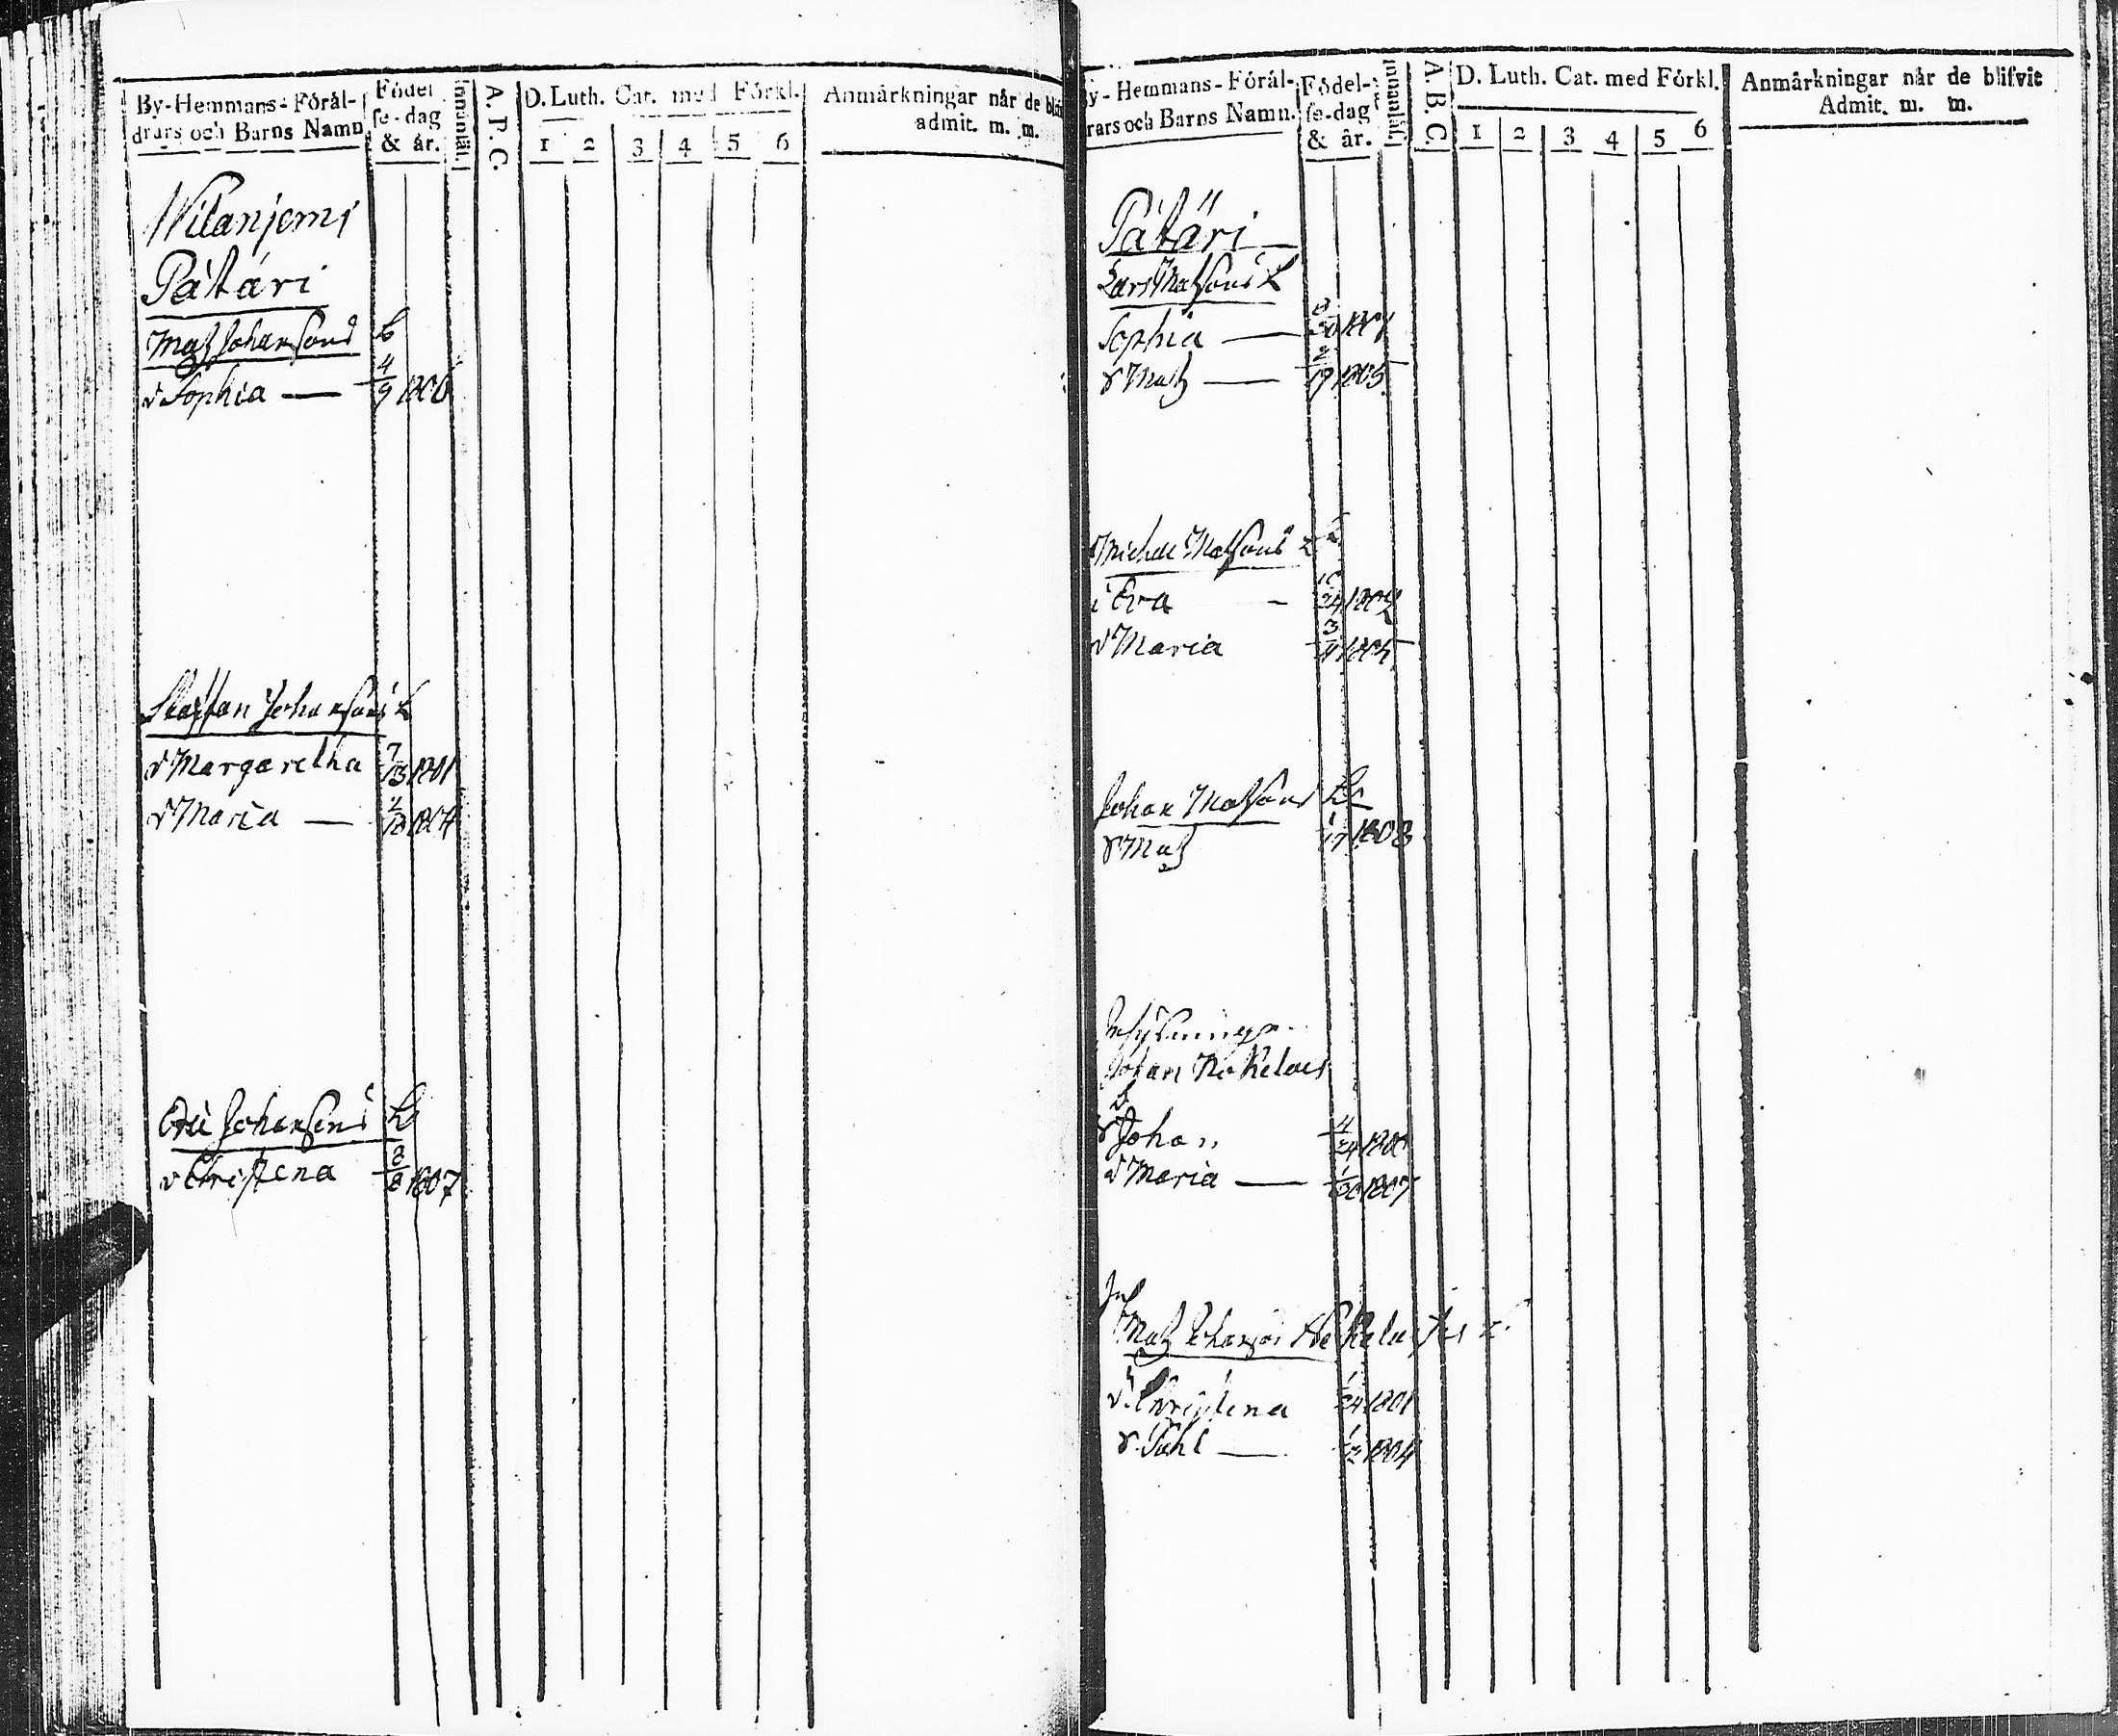 By-Hemmans-Förål-
drars och Barns Namn
Födel
se-dag
& år.
Innanläs.
A. B. C.
D. Luth. Cat. med Förkl.
1 2 3 4 5 6
Anmärkningar når de
admit. m. m.
Wilanjemi
Pätäri
Matz Johanssons b
d Sophia — 4/9 1806
Staffan Johanssons b
d Margaretha 7/13 1801
d Maria — 1804
Eric Johanssons b
d Christena 2/8 1807
By-Hemmans-Förål-
drars och Barns Namn.
Födel-
se-dag
& år.
Innanläs.
A. B. C.
D. Luth. Cat. med Förkl.
1 2 3 4 5 6
Anmärkningar når de blifvit
Admit. m. m.
Pätäri
Lars Matssons b
Sophia —
s Matz — 2/19 1805
Michel Matssons b
d Eva —
d Maria 3
Johan Matssons b
s Matz 1/17 1808
Johan
b
s Johan 4/24
d Maria — 1807
Inh
Matz Johansson
d Christena 1/24 1801
s 1804